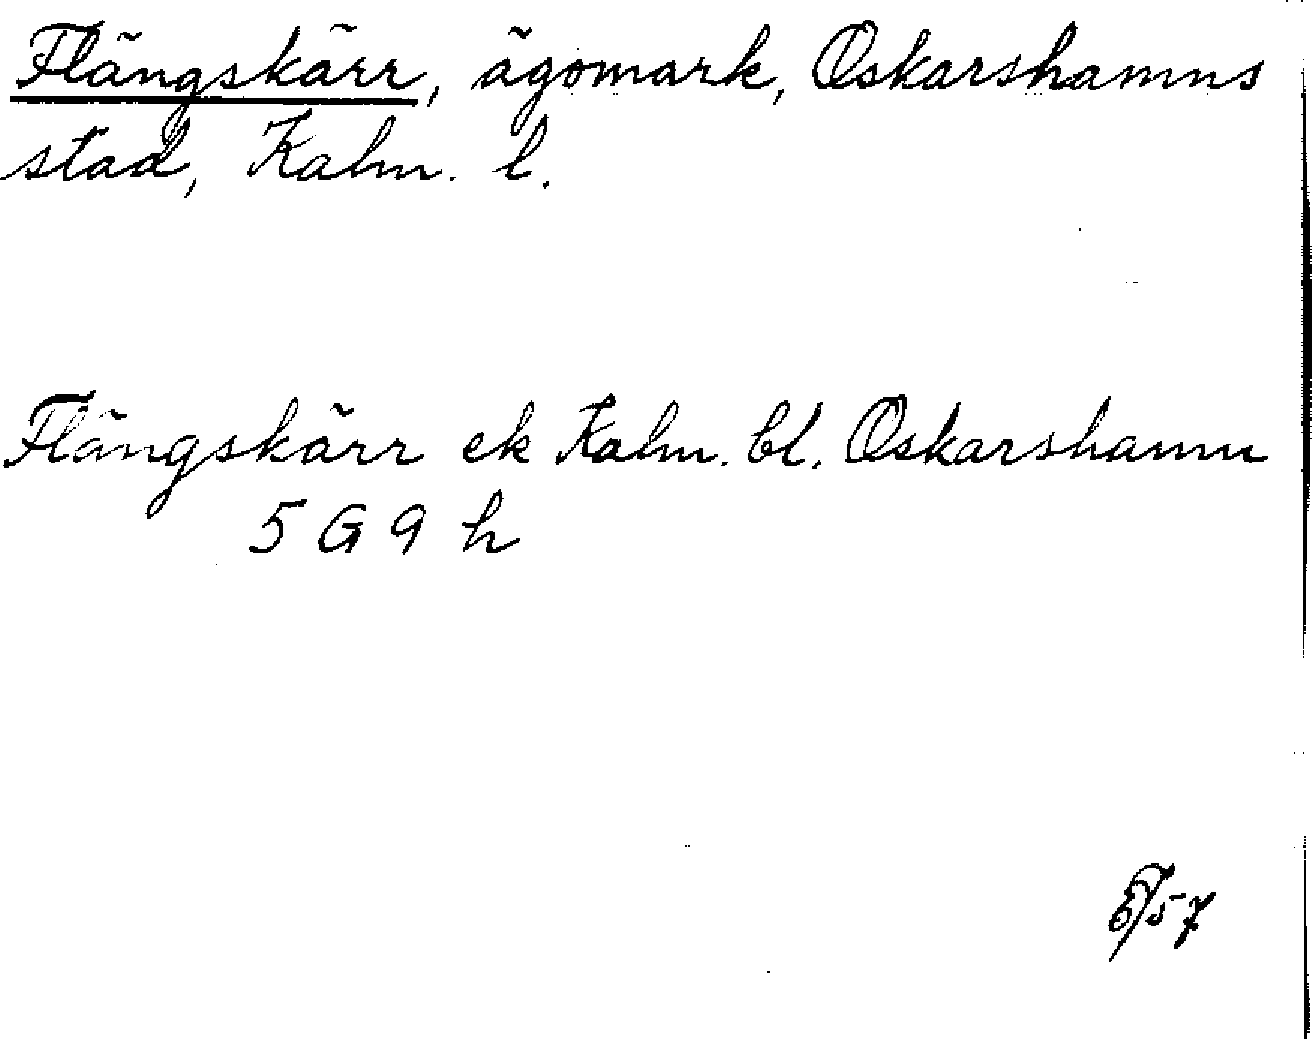 Flängskärr, ägomark, Oskarshamns
stad, Kalm. l.
Flängskärr ek Kalm. bl. Oskarshamn
5 G 9 h
/57